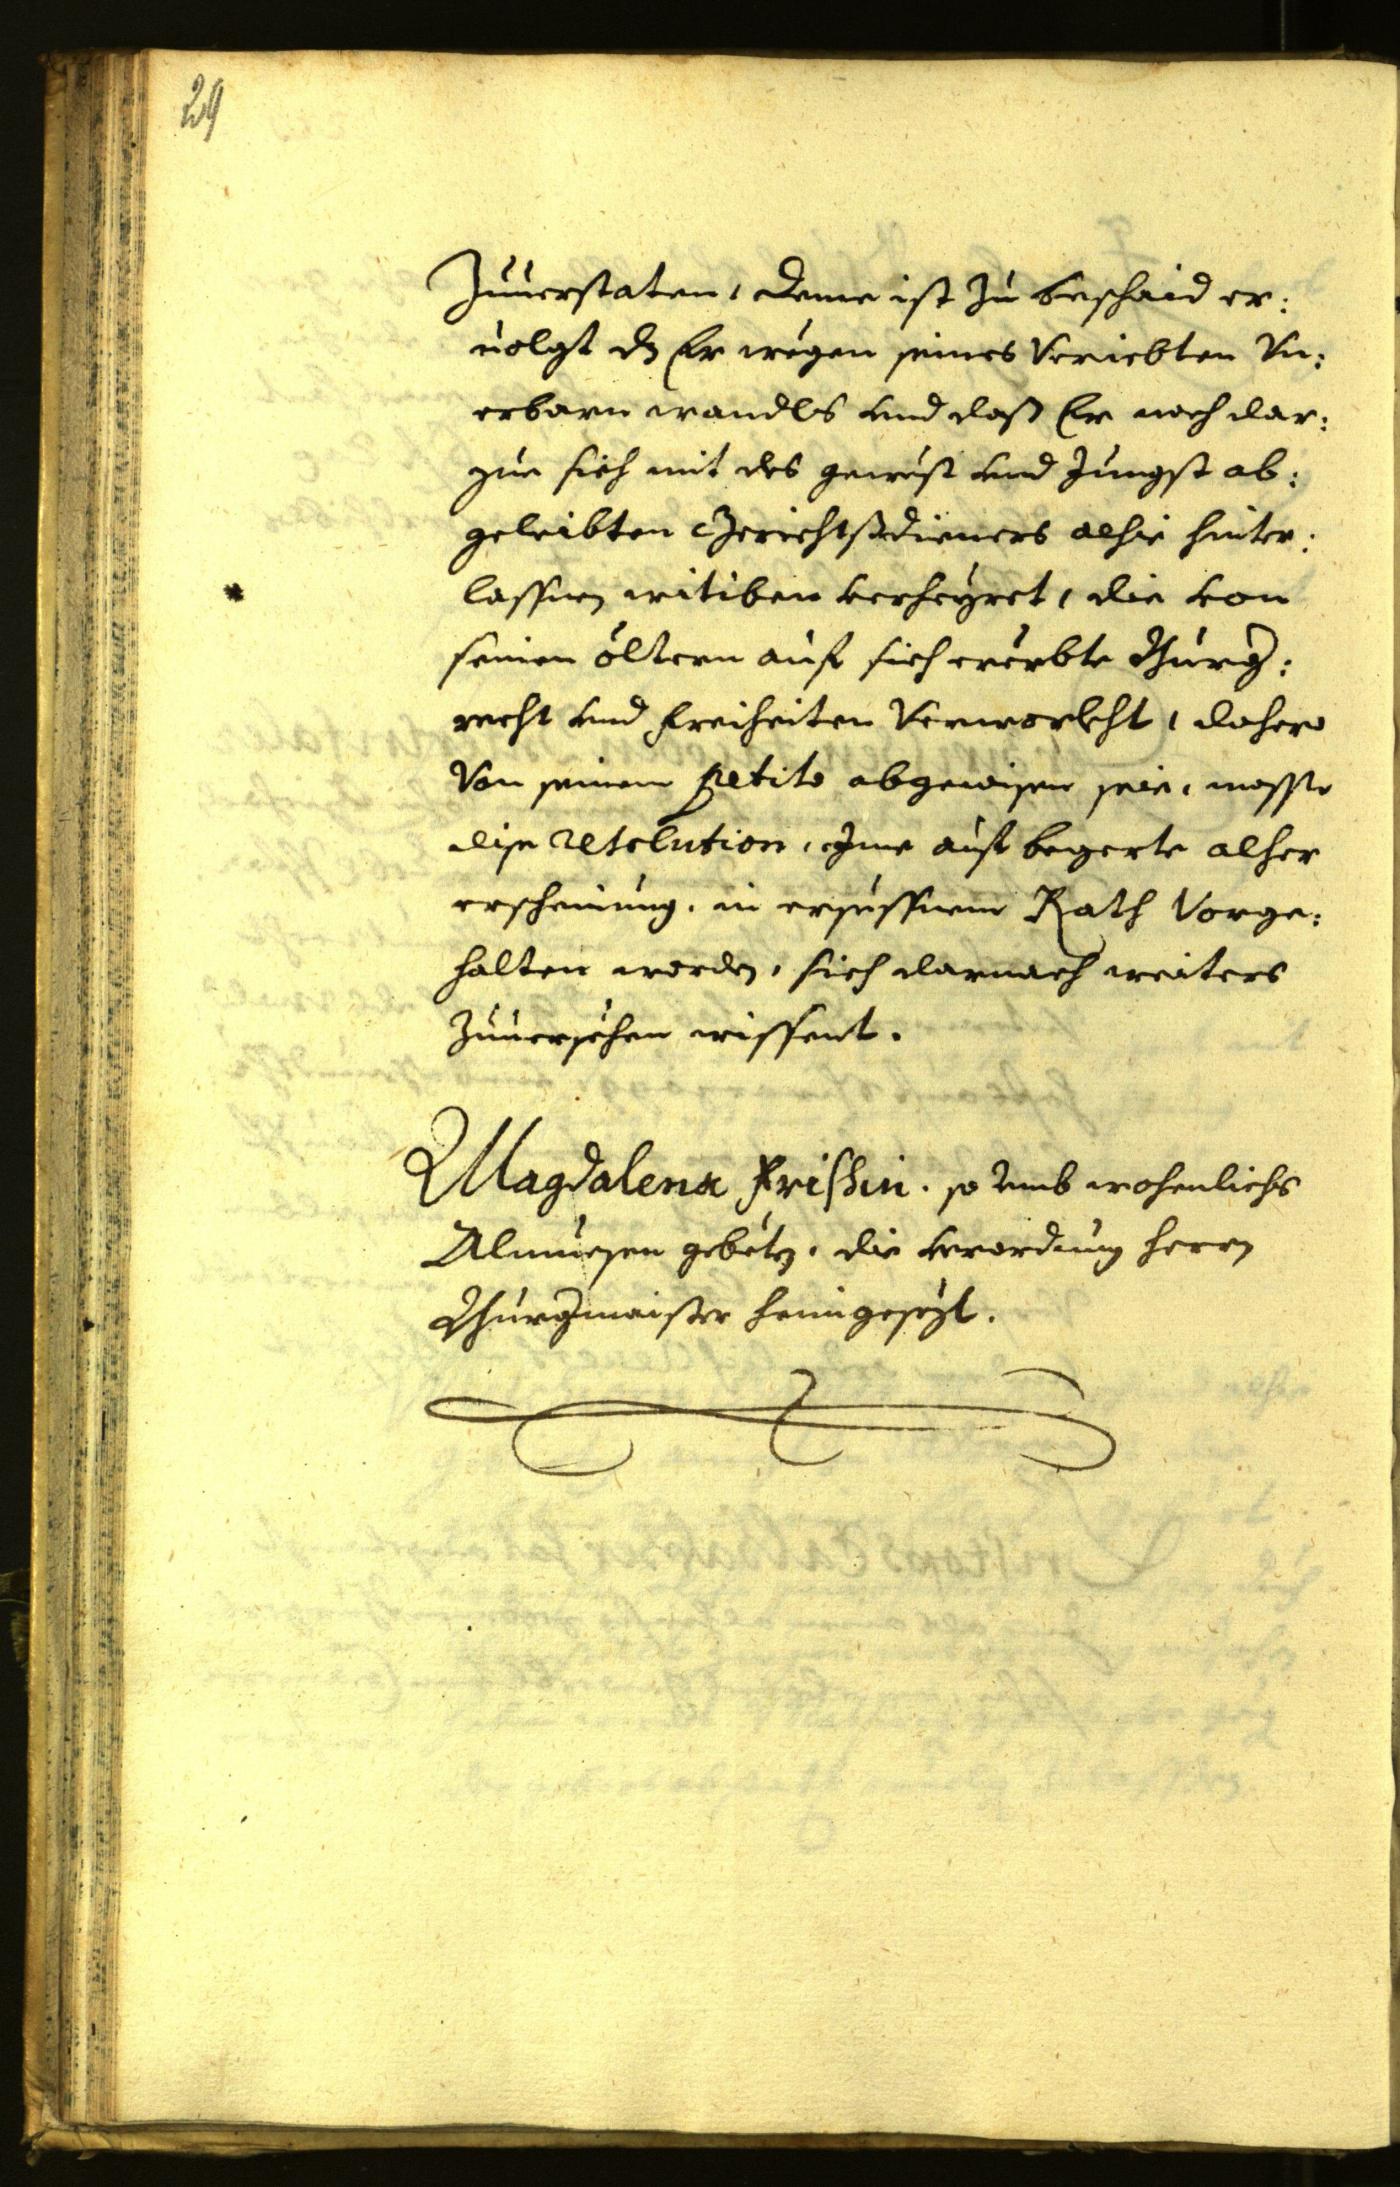 29
Zuuerstaten, deme ist zu beschaid er:
uolgt dz Er wegen seines Veriebten Vn:
erbarn wandls vnd daß Er noch dar:
zue sich mit des gewest vnd Jungst ab:
geleibten Gerichtsdieners alhie hinter:
lassnen witiben verheÿret, die von
seinen öltern auf sich ererbte Burg:
recht vnd freiheiten Verworcht, dahero
Von seinem petito abgewisen seie, masse
dise resolution, Ime auf begerte alher
erscheinung, in ersessnem Rath Vorge:
halten worden, sich darnach weiters
Zuuersehen wissent.
Magdalena Frissin. so vmb wohenlichs
Almuesen gebetn, die verordnung herrn
Burgmaister heimgesezt.